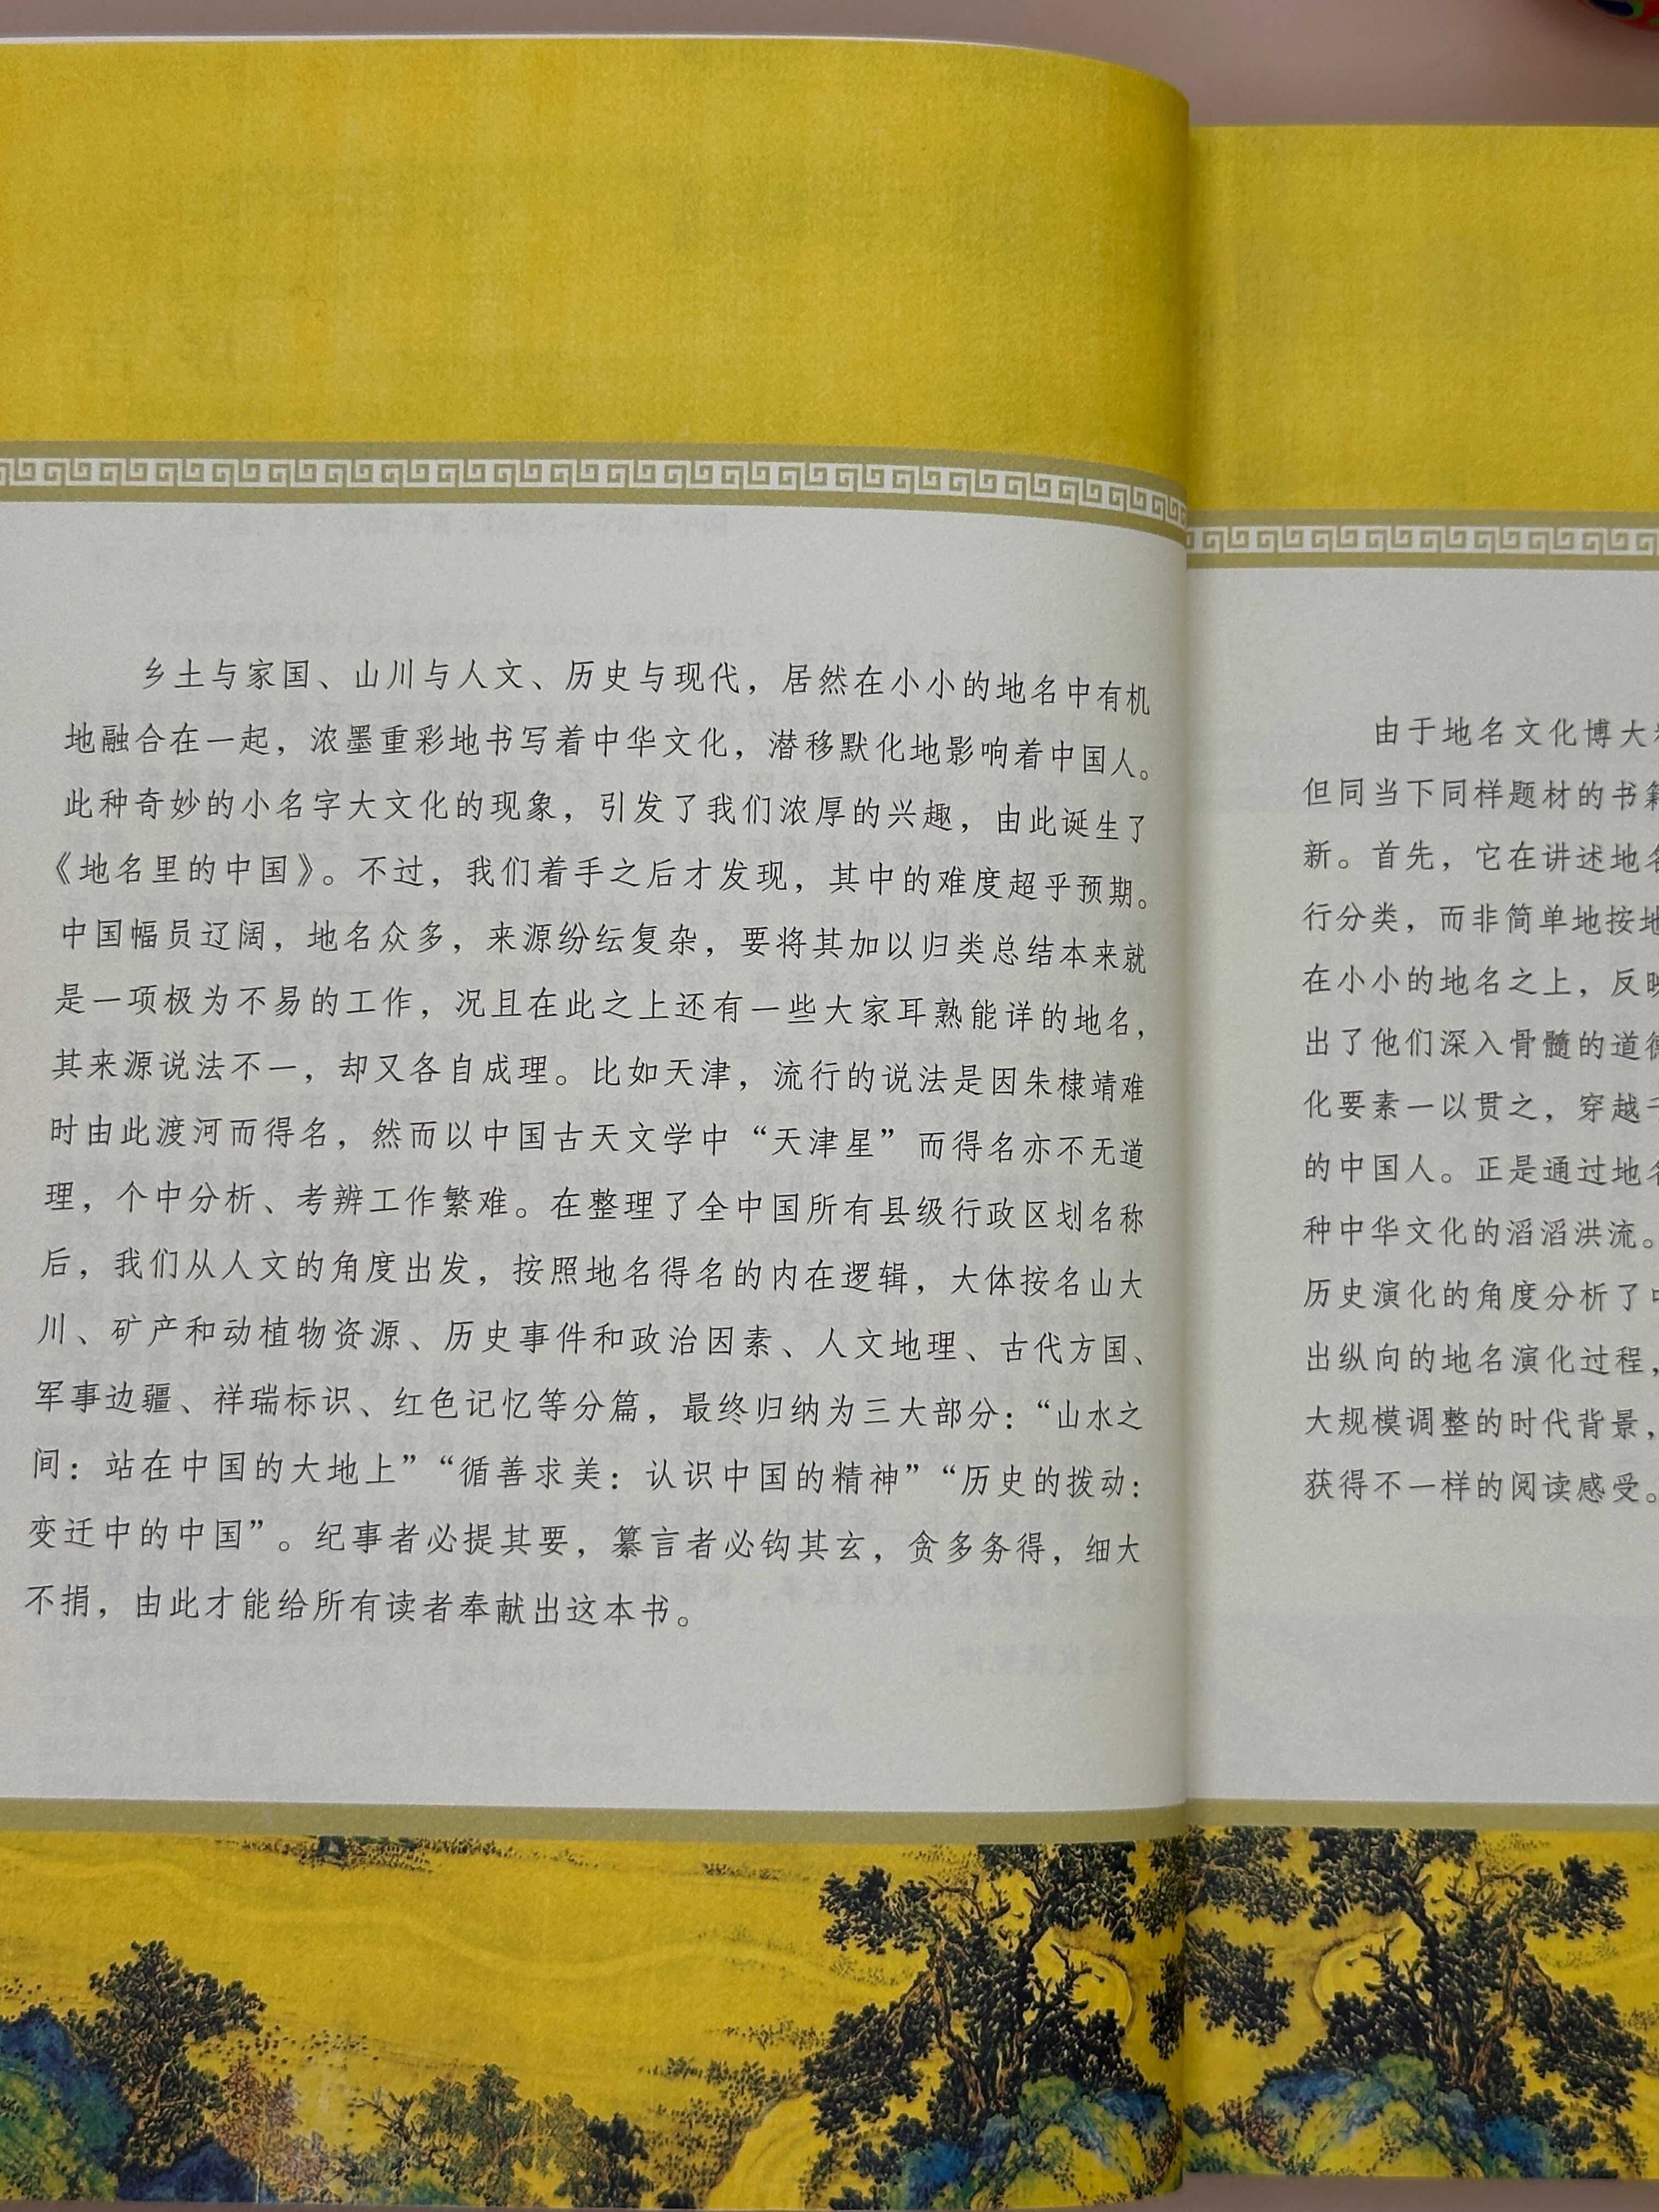 乡土与家国、山川与人文、历史与现代，居然在小小的地名中有机
地融合在一起，浓墨重彩地书写着中华文化，潜移默化地影响着中国人。
此种奇妙的小名字大文化的现象，引发了我们浓厚的兴趣，由此诞生了
《地名里的中国》。不过，我们着手之后才发现，其中的难度超乎预期。
中国幅员辽阔，地名众多，来源纷纭复杂，要将其加以归类总结本来就
是一项极为不易的工作，况且在此之上还有一些大家耳熟能详的地名，
其来源说法不一，却又各自成理。比如天津，流行的说法是因朱棣靖难
时由此渡河而得名，然而以中国古天文学中“天津星”而得名亦不无道
理，个中分析、考辨工作繁难。在整理了全中国所有县级行政区划名称
后，我们从人文的角度出发，按照地名得名的内在逻辑，大体按名山大
川、矿产和动植物资源、历史事件和政治因素、人文地理、古代方国、
军事边疆、祥瑞标识、红色记忆等分篇，最终归纳为三大部分：“山水之
间：站在中国的大地上”“循善求美：认识中国的精神”“历史的拨动：
变迁中的中国”。纪事者必提其要，纂言者必钩其玄，贪多务得，细大
不捐，由此才能给所有读者奉献出这本书。
由于地名文化博大
但同当下同样题材的书籍
新。首先，它在讲述地名
行分类，而非简单地按地
在小小的地名之上，反映
出了他们深入骨髓的道德
化要素一以贯之，穿越
的中国人。正是通过地名
种中华文化的滔滔洪流。
历史演化的角度分析了
出纵向的地名演化过程，
大规模调整的时代背景，
获得不一样的阅读感受。